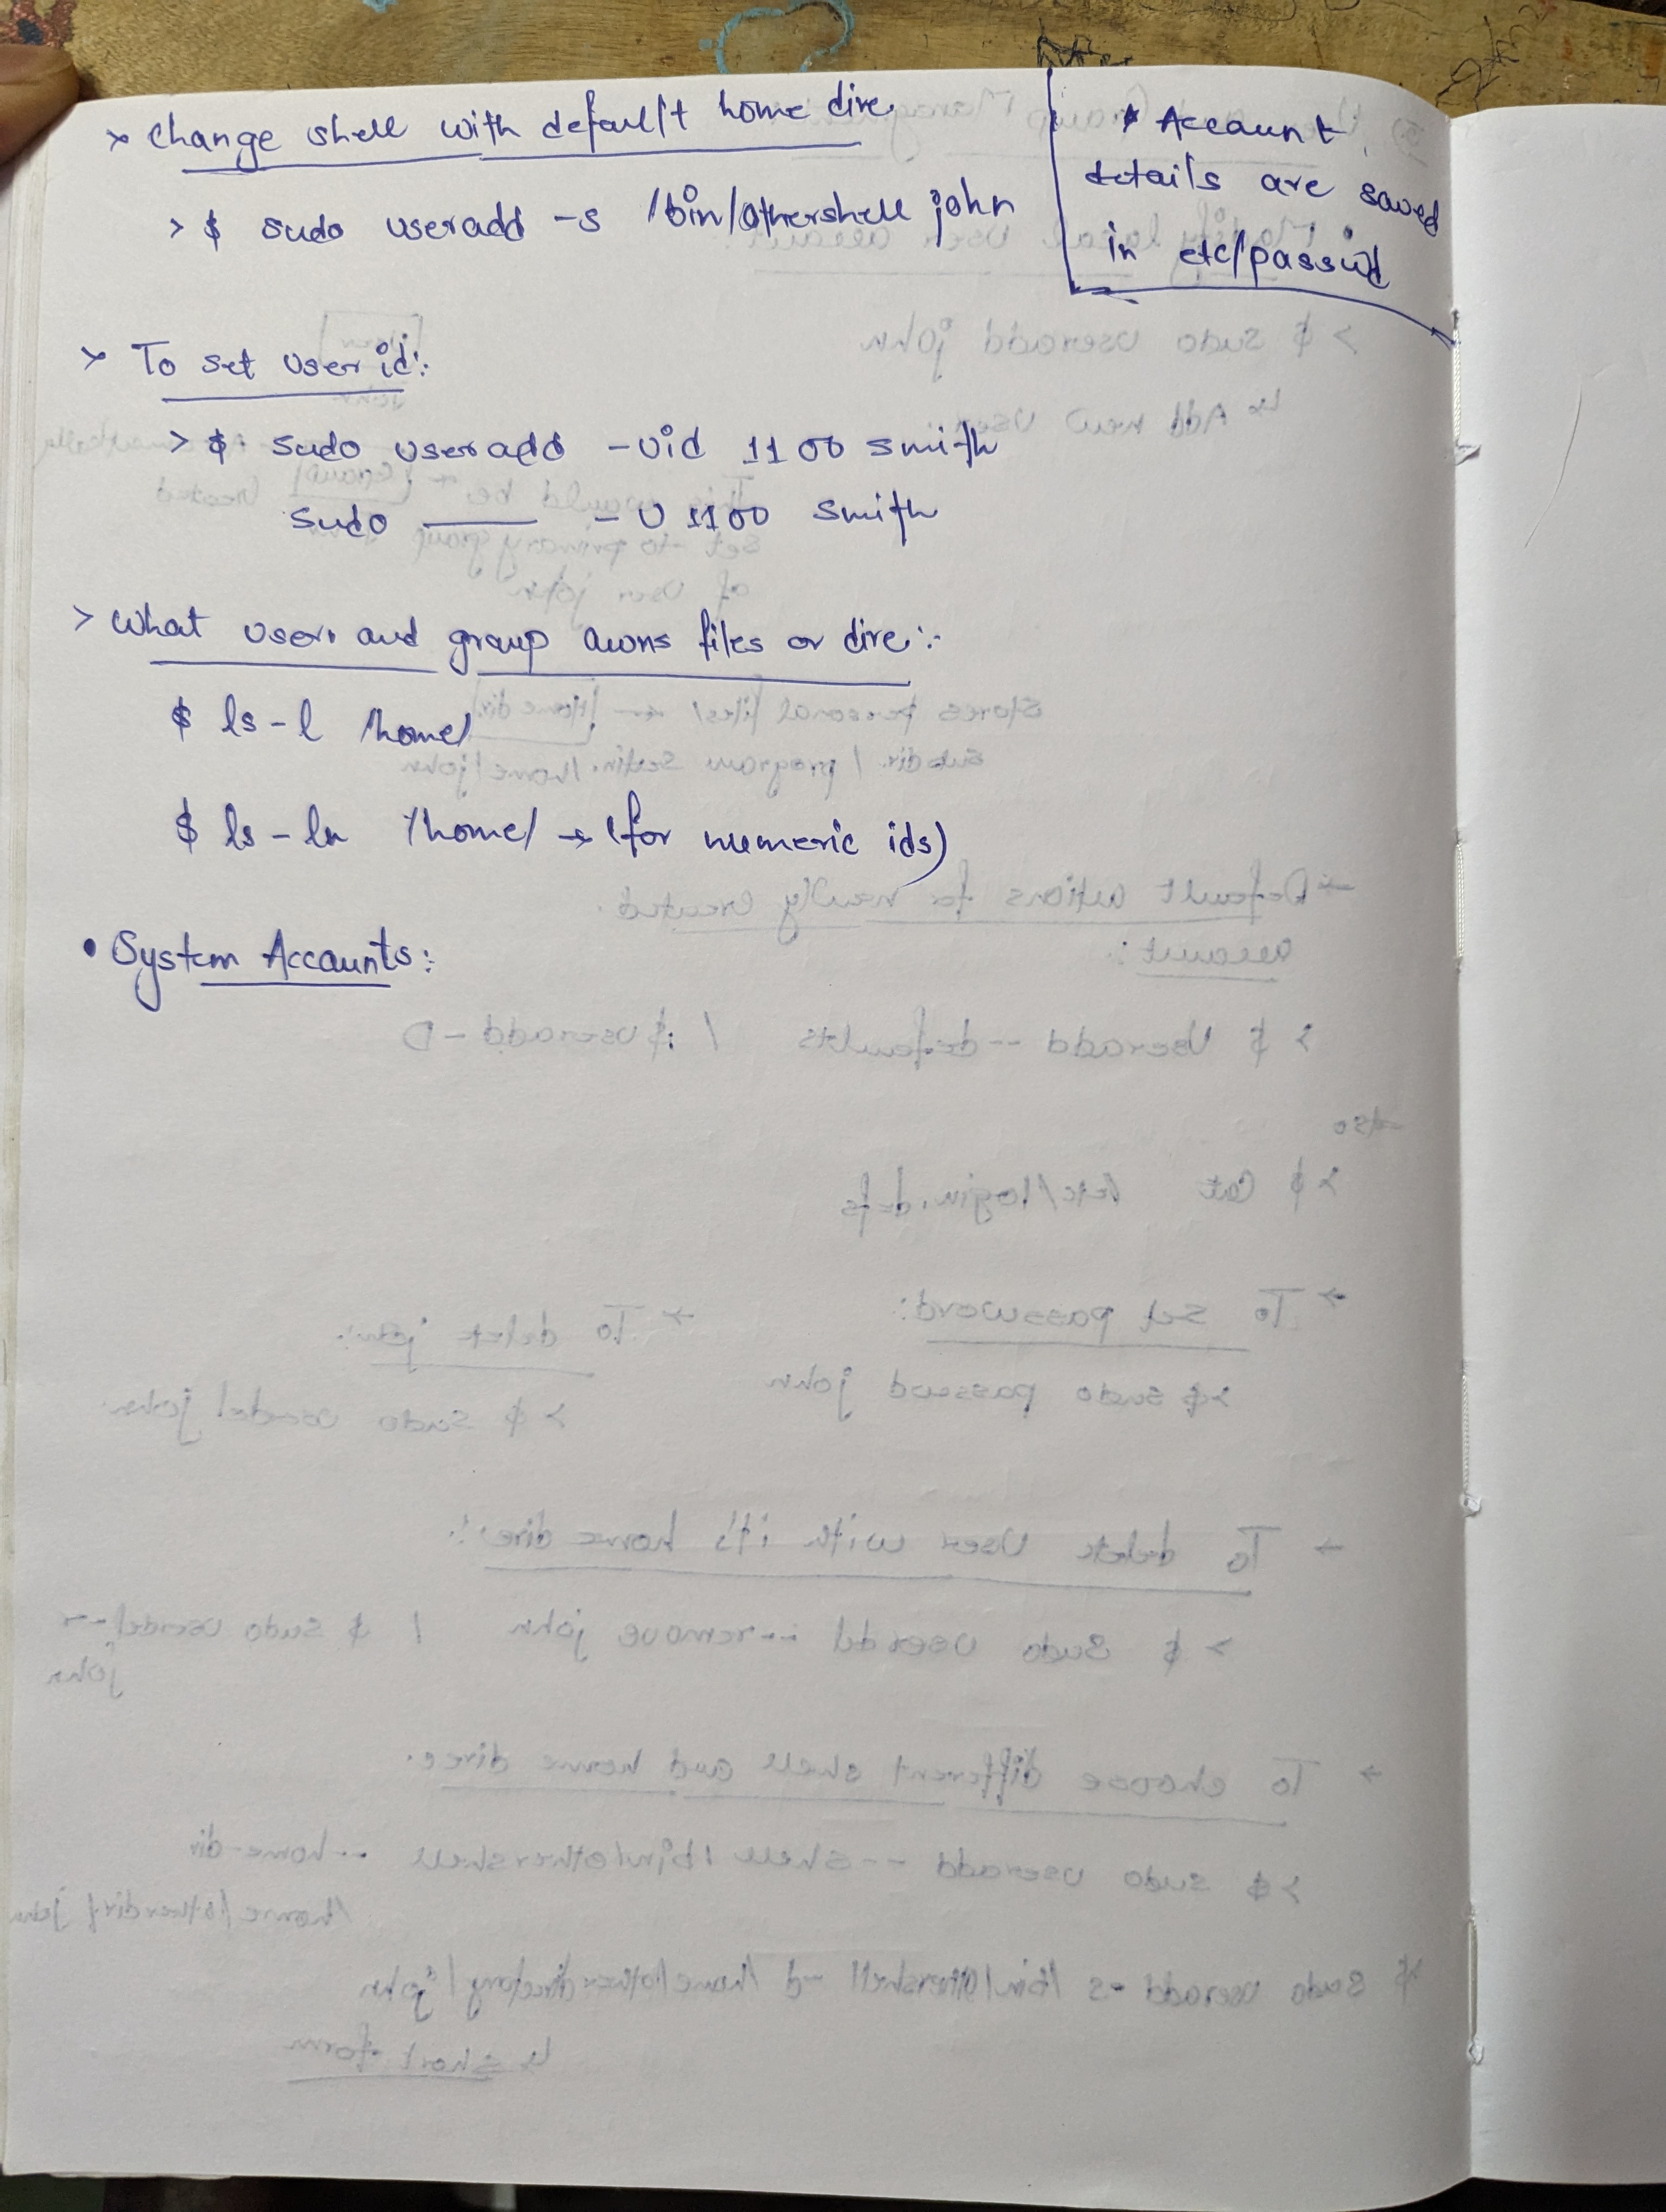 > Change shell with default home dire.
> $ sudo useradd -s /bin/othershell john
* Account
details are saved
in etc/passwd
> To set user id:
> $ sudo useradd -uid 1100 smith
sudo —— -u 1100 smith
> What user and group owns files or dire:-
$ ls -l /home/
$ ls -ln /home/ → (for numeric ids)
• System Accounts: